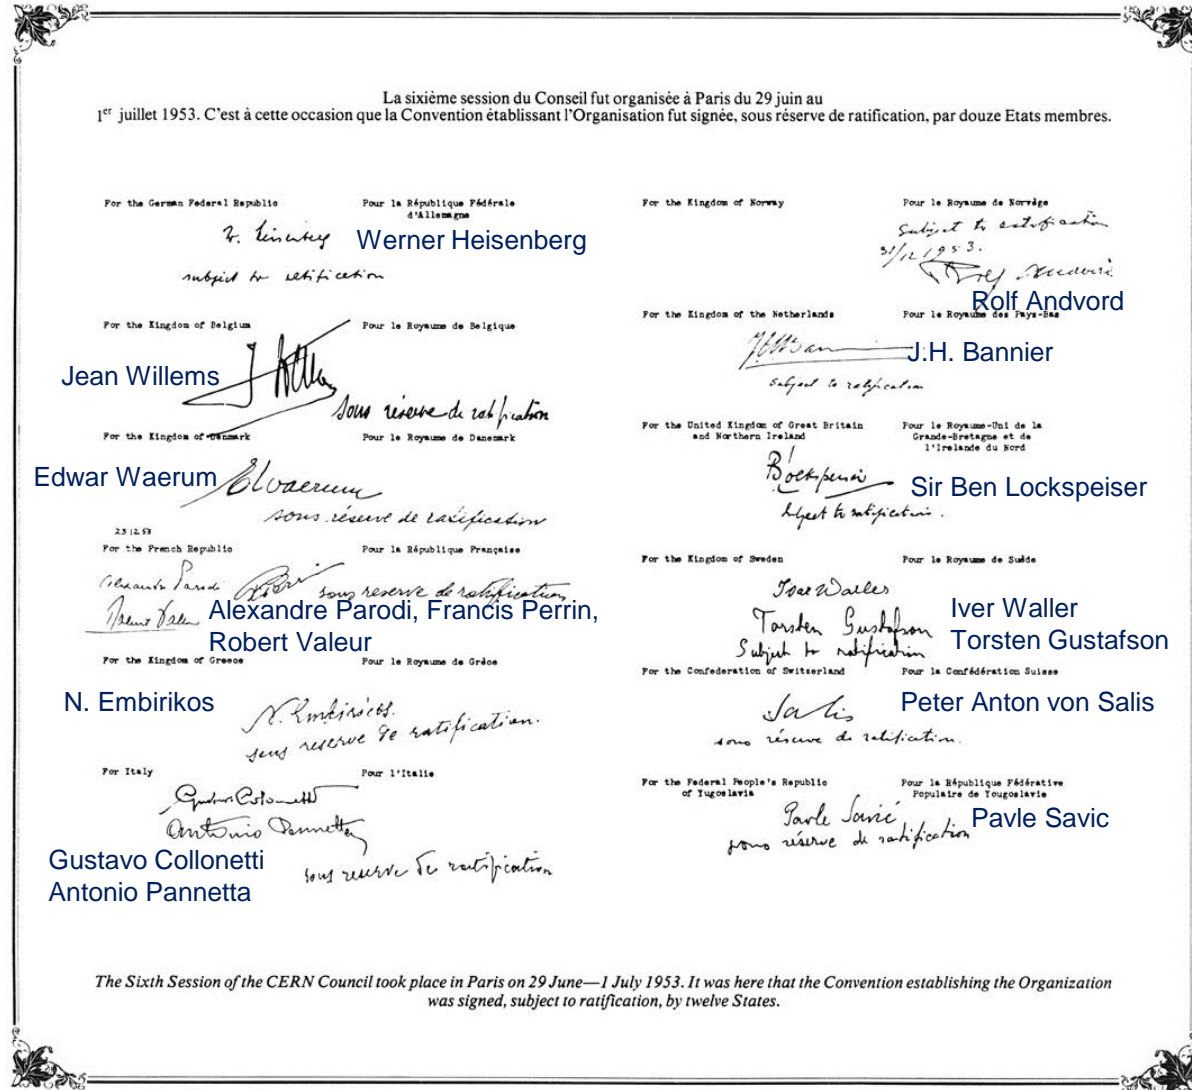 La sixième session du Conseil fut organisée à Paris du 29 juin au
1er juillet 1953. C'est à cette occasion que la Convention établissant l'Organisation fut signée, sous réserve de ratification, par douze Etats membres.
For the German Federal Republic
Pour la République Fédérale
d'Allemagne
Werner Heisenberg
subject to ratification
For the Kingdom of Belgium
Pour le Royaume de Belgique
Jean Willems
sous réserve de ratification
For the Kingdom of Denmark
Pour le Royaume de Danemark
Edwar Waerum
EWaerum
sous réserve de ratification
23 12 53
For the French Republic
Pour la République Française
Alexandre Parodi
sous reserve de ratification
Alexandre Parodi, Francis Perrin,
Robert Valeur
For the Kingdom of Greece
Pour le Royaume de Grèce
N. Embirikos
N. Embiricos.
sous reserve de ratification.
For Italy
Pour l'Italie
Gustavo Colonnetti
Antonio Pennetta
Gustavo Collonetti
Antonio Pannetta
sous reserve de ratification
For the Kingdom of Norway
Pour le Royaume de Norvège
Subject to ratification
31/12 1953.
Rolf Andvord
Rolf Andvord
For the Kingdom of the Netherlands
Pour le Royaume des Pays-Bas
JHBannier
J.H. Bannier
subject to ratification
For the United Kingdom of Great Britain
and Northern Ireland
Pour le Royaume-Uni de la
Grande-Bretagne et de
l'Irelande du Nord
B Lockspeiser
Sir Ben Lockspeiser
subject to ratification.
For the Kingdom of Sweden
Pour le Royaume de Suède
Ivar Waller
Iver Waller
Torsten Gustafson
Torsten Gustafson
Subject to ratification
For the Confederation of Switzerland
Pour la Confédération Suisse
Peter Anton von Salis
Salis
sous réserve de ratification.
For the Federal People's Republic
of Yugoslavia
Pour la République Fédérative
Populaire de Yougoslavie
Pavle Savić
Pavle Savic
sous réserve de ratification
The Sixth Session of the CERN Council took place in Paris on 29 June—1 July 1953. It was here that the Convention establishing the Organization
was signed, subject to ratification, by twelve States.